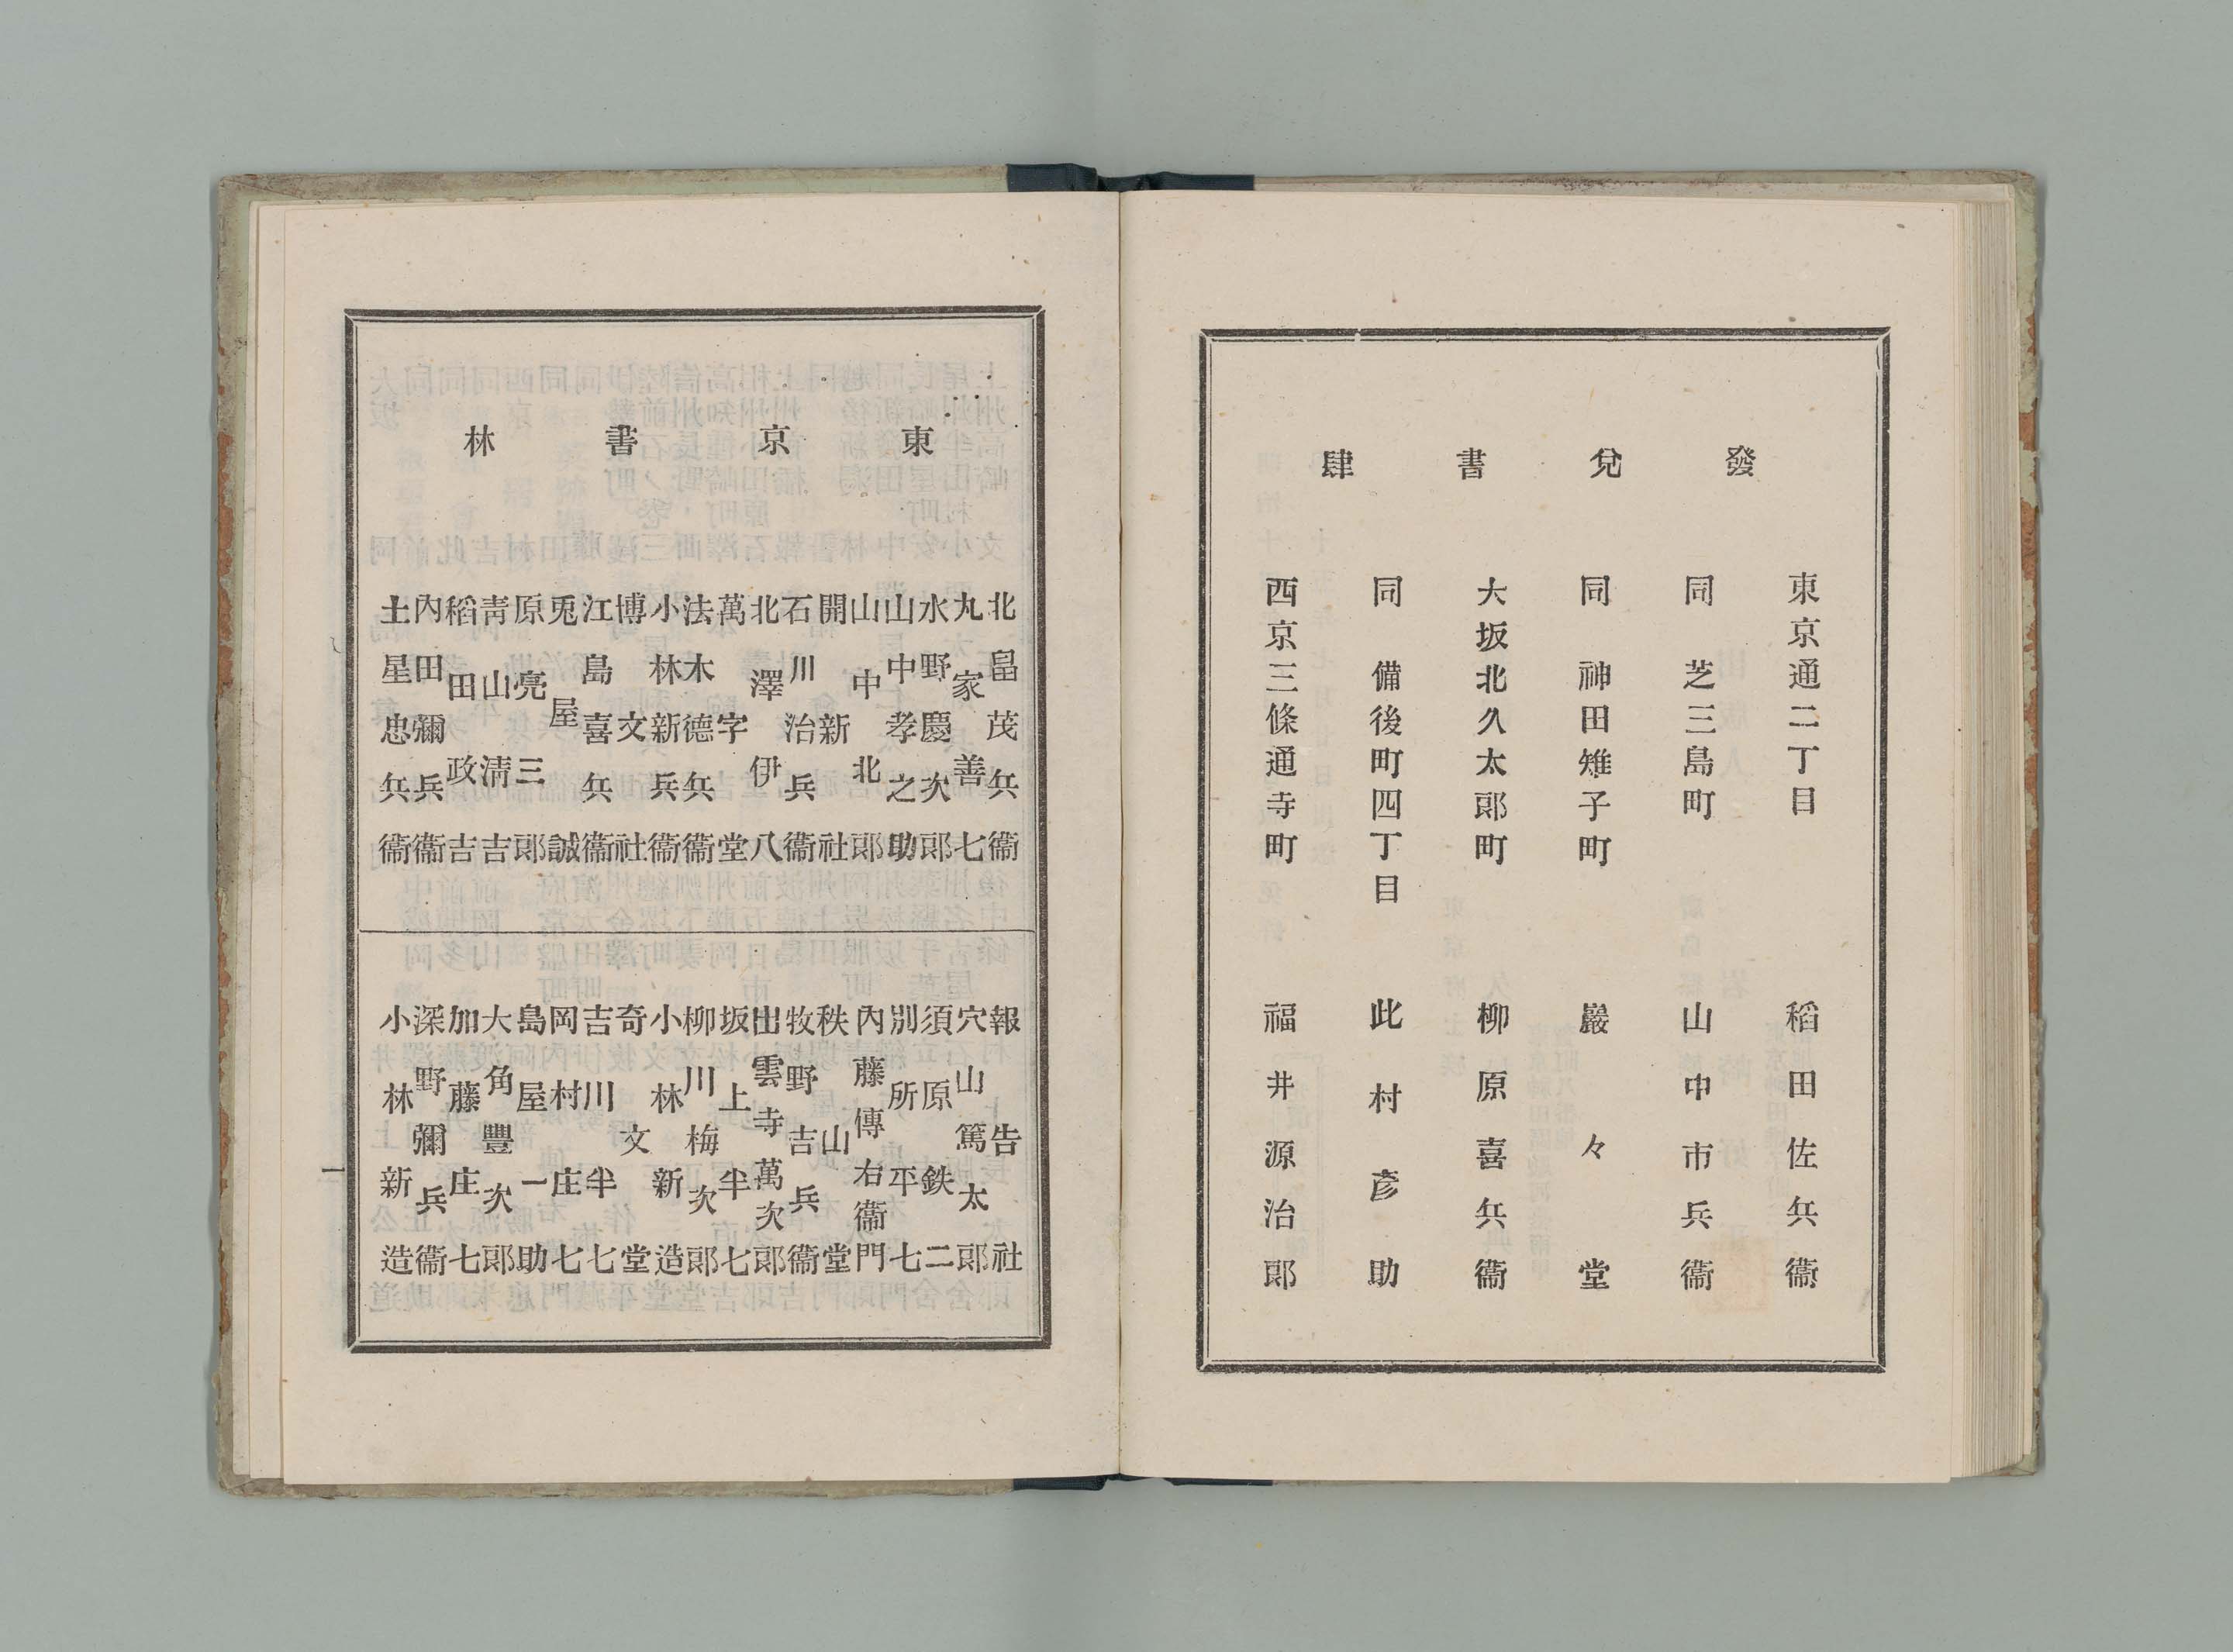 發兌書肆
東京通二丁目 稻田佐兵衞
同 芝三島町 山中市兵衞
同 神田雉子町 巖々堂
大坂北久太郎町 柳原喜兵衞
同 備後町四丁目 此村彦助
西京三條通寺町 福井源治郎
東京書林
北畠茂兵衞
丸家善七
水野慶次郎
山中孝之助
山中北郎
開新社
石川治兵衞
北澤伊八
萬字堂
法木德兵衞
小林新兵衞
博文社
江島喜兵衞
兎屋誠
原亮三郎
靑山淸吉
稻田政吉
內田彌兵衞
土星忠兵衞
報告社
穴山篤太郎
須原鉄二
別所平七
內藤傳右衞門
秩山堂
牧野吉兵衞
出雲寺萬次郎
坂上半七
柳川梅次郎
小林新造
奇文堂
吉川半七
岡村庄七
島屋一助
大角豐次郎
加藤庄七
深野彌兵衞
小林新造
一